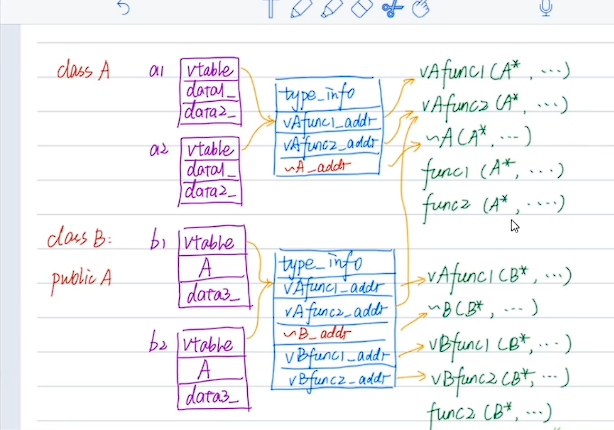 class A
a1
vtable
data1_
data2_
a2
vtable
data1_
data2_
type_info
vAfunc1_addr
vAfunc2_addr
~A_addr
vAfunc1(A*, ...)
vAfunc2(A*, ...)
~A(A*, ...)
func1(A*, ...)
func2(A*, ....)
class B:
public A
b1
vtable
A
data3_
b2
vtable
A
data3_
type_info
vAfunc1_addr
vAfunc2_addr
~B_addr
vBfunc1_addr
vBfunc2_addr
vAfunc1(B*, ...)
~B(B*, ...)
vBfunc1(B*, ...)
vBfunc2(B*, ...)
func2(B*, ...)